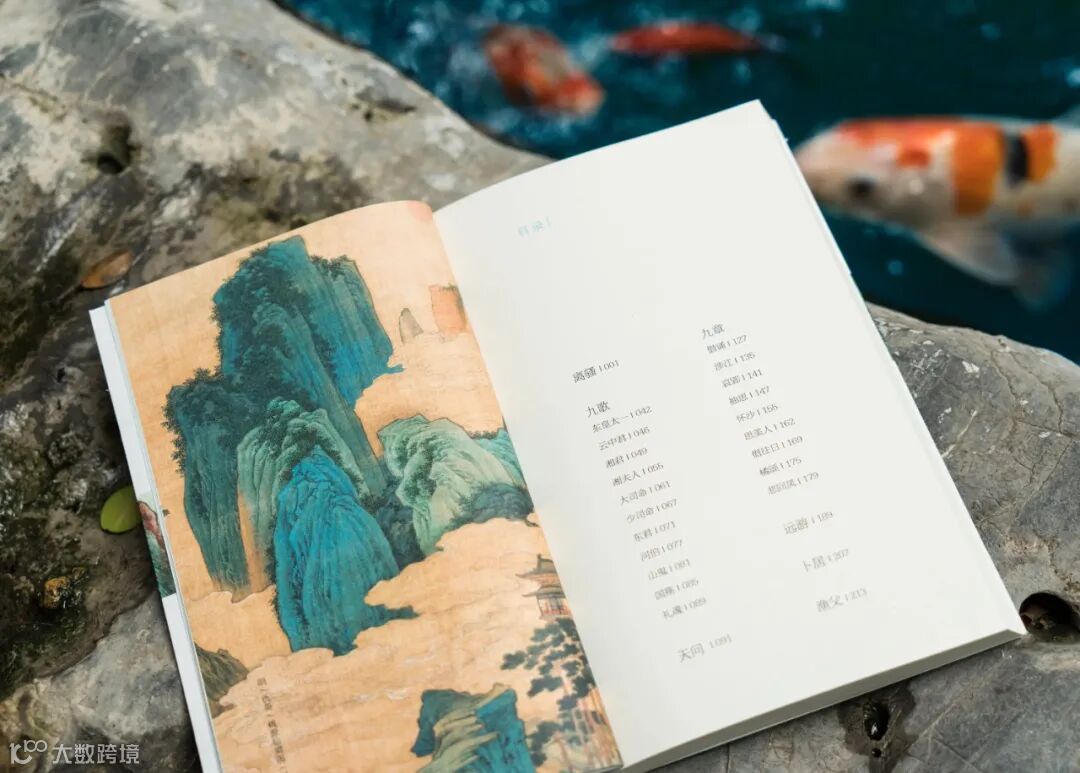 目录 |
离骚 | 001
九歌
东皇太一 | 042
云中君 | 046
湘君 | 049
湘夫人 | 055
大司命 | 061
少司命 | 067
东君 | 071
河伯 | 077
山鬼 | 081
国殇 | 085
礼魂 | 089
天问 | 091
九章
惜诵 | 127
涉江 | 135
哀郢 | 141
抽思 | 147
怀沙 | 155
思美人 | 162
惜往日 | 169
橘颂 | 175
悲回风 | 179
远游 | 189
卜居 | 207
渔父 | 213
大数跨境